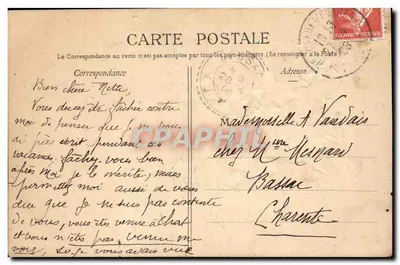 CARTE POSTALE
La Correspondance au recto n'est pas acceptée par tous les pays étrangers. (Se renseigner à la Poste)
Correspondance
Adresse
Bien chère Nette
Vous devez être fâchée contre
moi de penser que je ne vous
ai pas écrit pendant ces
vacances, fachez-vous bien
après moi je le mérite, mais
permettez moi aussi de vous
dire que je ne suis pas contente
de vous, vous êtes venue à
et vous n'êtes pas venue me
voir, si je vous avais vue
Mademoiselle A.
chez Mme Mesnard
Bassac
Charente
CARTPHILA